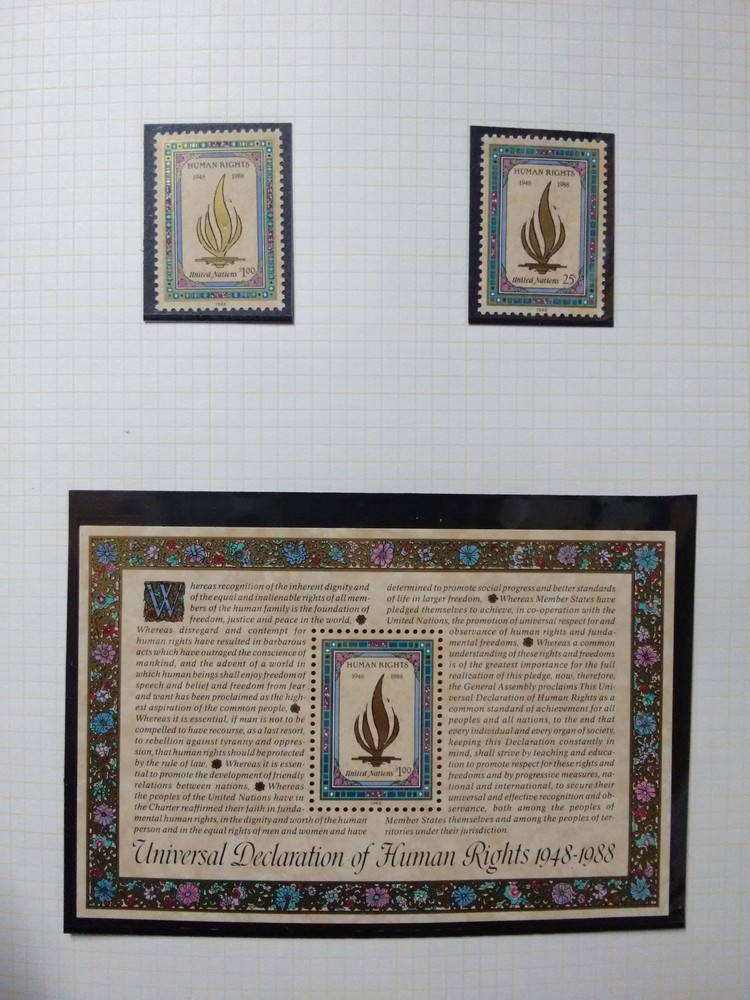 HUMAN RIGHTS
1948 1988
United Nations $1.00
1988
HUMAN RIGHTS
1948 1988
United Nations 25c
1988
Whereas recognition of the inherent dignity and
of the equal and inalienable rights of all mem-
bers of the human family is the foundation of
freedom, justice and peace in the world,
Whereas disregard and contempt for
human rights have resulted in barbarous
acts which have outraged the conscience of
mankind, and the advent of a world in
which human beings shall enjoy freedom of
speech and belief and freedom from fear
and want has been proclaimed as the high-
est aspiration of the common people,
Whereas it is essential, if man is not to be
compelled to have recourse, as a last resort,
to rebellion against tyranny and oppres-
sion, that human rights should be protected
by the rule of law, Whereas it is essen-
tial to promote the development of friendly
relations between nations, Whereas
the peoples of the United Nations have in
the Charter reaffirmed their faith in funda-
mental human rights, in the dignity and worth of the human
person and in the equal rights of men and women and have
determined to promote social progress and better standards
of life in larger freedom, Whereas Member States have
pledged themselves to achieve, in co-operation with the
United Nations, the promotion of universal respect for and
observance of human rights and funda-
mental freedoms, Whereas a common
understanding of these rights and freedoms
is of the greatest importance for the full
realization of this pledge, now, therefore,
the General Assembly proclaims This Uni-
versal Declaration of Human Rights as a
common standard of achievement for all
peoples and all nations, to the end that
every individual and every organ of society,
keeping this Declaration constantly in
mind, shall strive by teaching and educa-
tion to promote respect for these rights and
freedoms and by progressive measures, na-
tional and international, to secure their
universal and effective recognition and ob-
servance, both among the peoples of
Member States themselves and among the peoples of ter-
ritories under their jurisdiction.
HUMAN RIGHTS
1948 1988
United Nations $1.00
1988
Universal Declaration of Human Rights 1948-1988